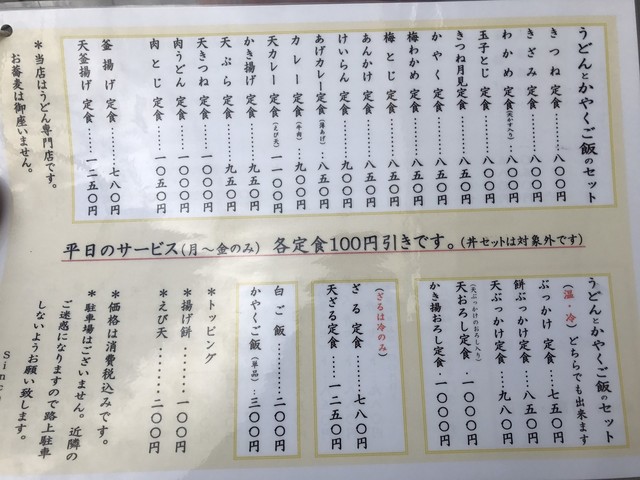 うどんとかやくご飯のセット
きつね定食………八〇〇円
きざみ定食………八〇〇円
わかめ定食(天かす入り)……八〇〇円
玉子とじ定食………八五〇円
きつね月見定食……八五〇円
かやく定食………八五〇円
梅わかめ定食………八五〇円
梅とじ定食………八五〇円
あんかけ定食………八五〇円
けいらん定食………九〇〇円
あげカレー定食(薄あげ)…八五〇円
カレー定食(牛肉)……九〇〇円
天カレー定食(えび天)…一一〇〇円
かき揚げ定食………九五〇円
天ぷら定食………九五〇円
天きつね定食……一〇〇〇円
肉うどん定食……一〇〇〇円
肉とじ定食……一〇五〇円
釜揚げ定食………七八〇円
天釜揚げ定食……一二五〇円
＊当店はうどん専門店です。
お蕎麦は御座いません。
平日のサービス(月～金のみ) 各定食100円引きです。(丼セットは対象外です)
うどんとかやくご飯のセット
(温・冷)どちらでも出来ます
ぶっかけ定食……七五〇円
餅ぶっかけ定食……八五〇円
天ぶっかけ定食……九八〇円
(天ぶっかけのおろし入り)
天おろし定食・一〇〇〇円
かき揚おろし定食・一〇〇〇円
(ざるは冷のみ)
ざる定食……七八〇円
天ざる定食……一二五〇円
白ご飯………二〇〇円
かやくご飯(単品)…三〇〇円
＊トッピング
＊揚げ餅………一〇〇円
＊えび天………二〇〇円
＊価格は消費税込みです。
＊駐車場はございません。近隣の
ご迷惑になりますので路上駐車
しないようお願い致します。
Sinc